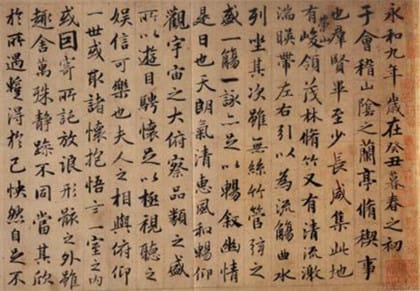 永和九年歲在癸丑暮春之初
于會稽山陰之蘭亭脩稧事
也羣賢畢至少長咸集此地
有崇山峻領茂林脩竹又有清流激
湍暎帶左右引以為流觴曲水
列坐其次雖無絲竹管弦之
盛一觴一詠亦足以暢叙幽情
是日也天朗氣清惠風和暢仰
觀宇宙之大俯察品類之盛
所以遊目騁懷足以極視聽之
娛信可樂也夫人之相與俯仰
一世或取諸懷抱悟言一室之內
或因寄所託放浪形骸之外雖
趣舍萬殊靜躁不同當其欣
於所遇蹔得於己怏然自足不